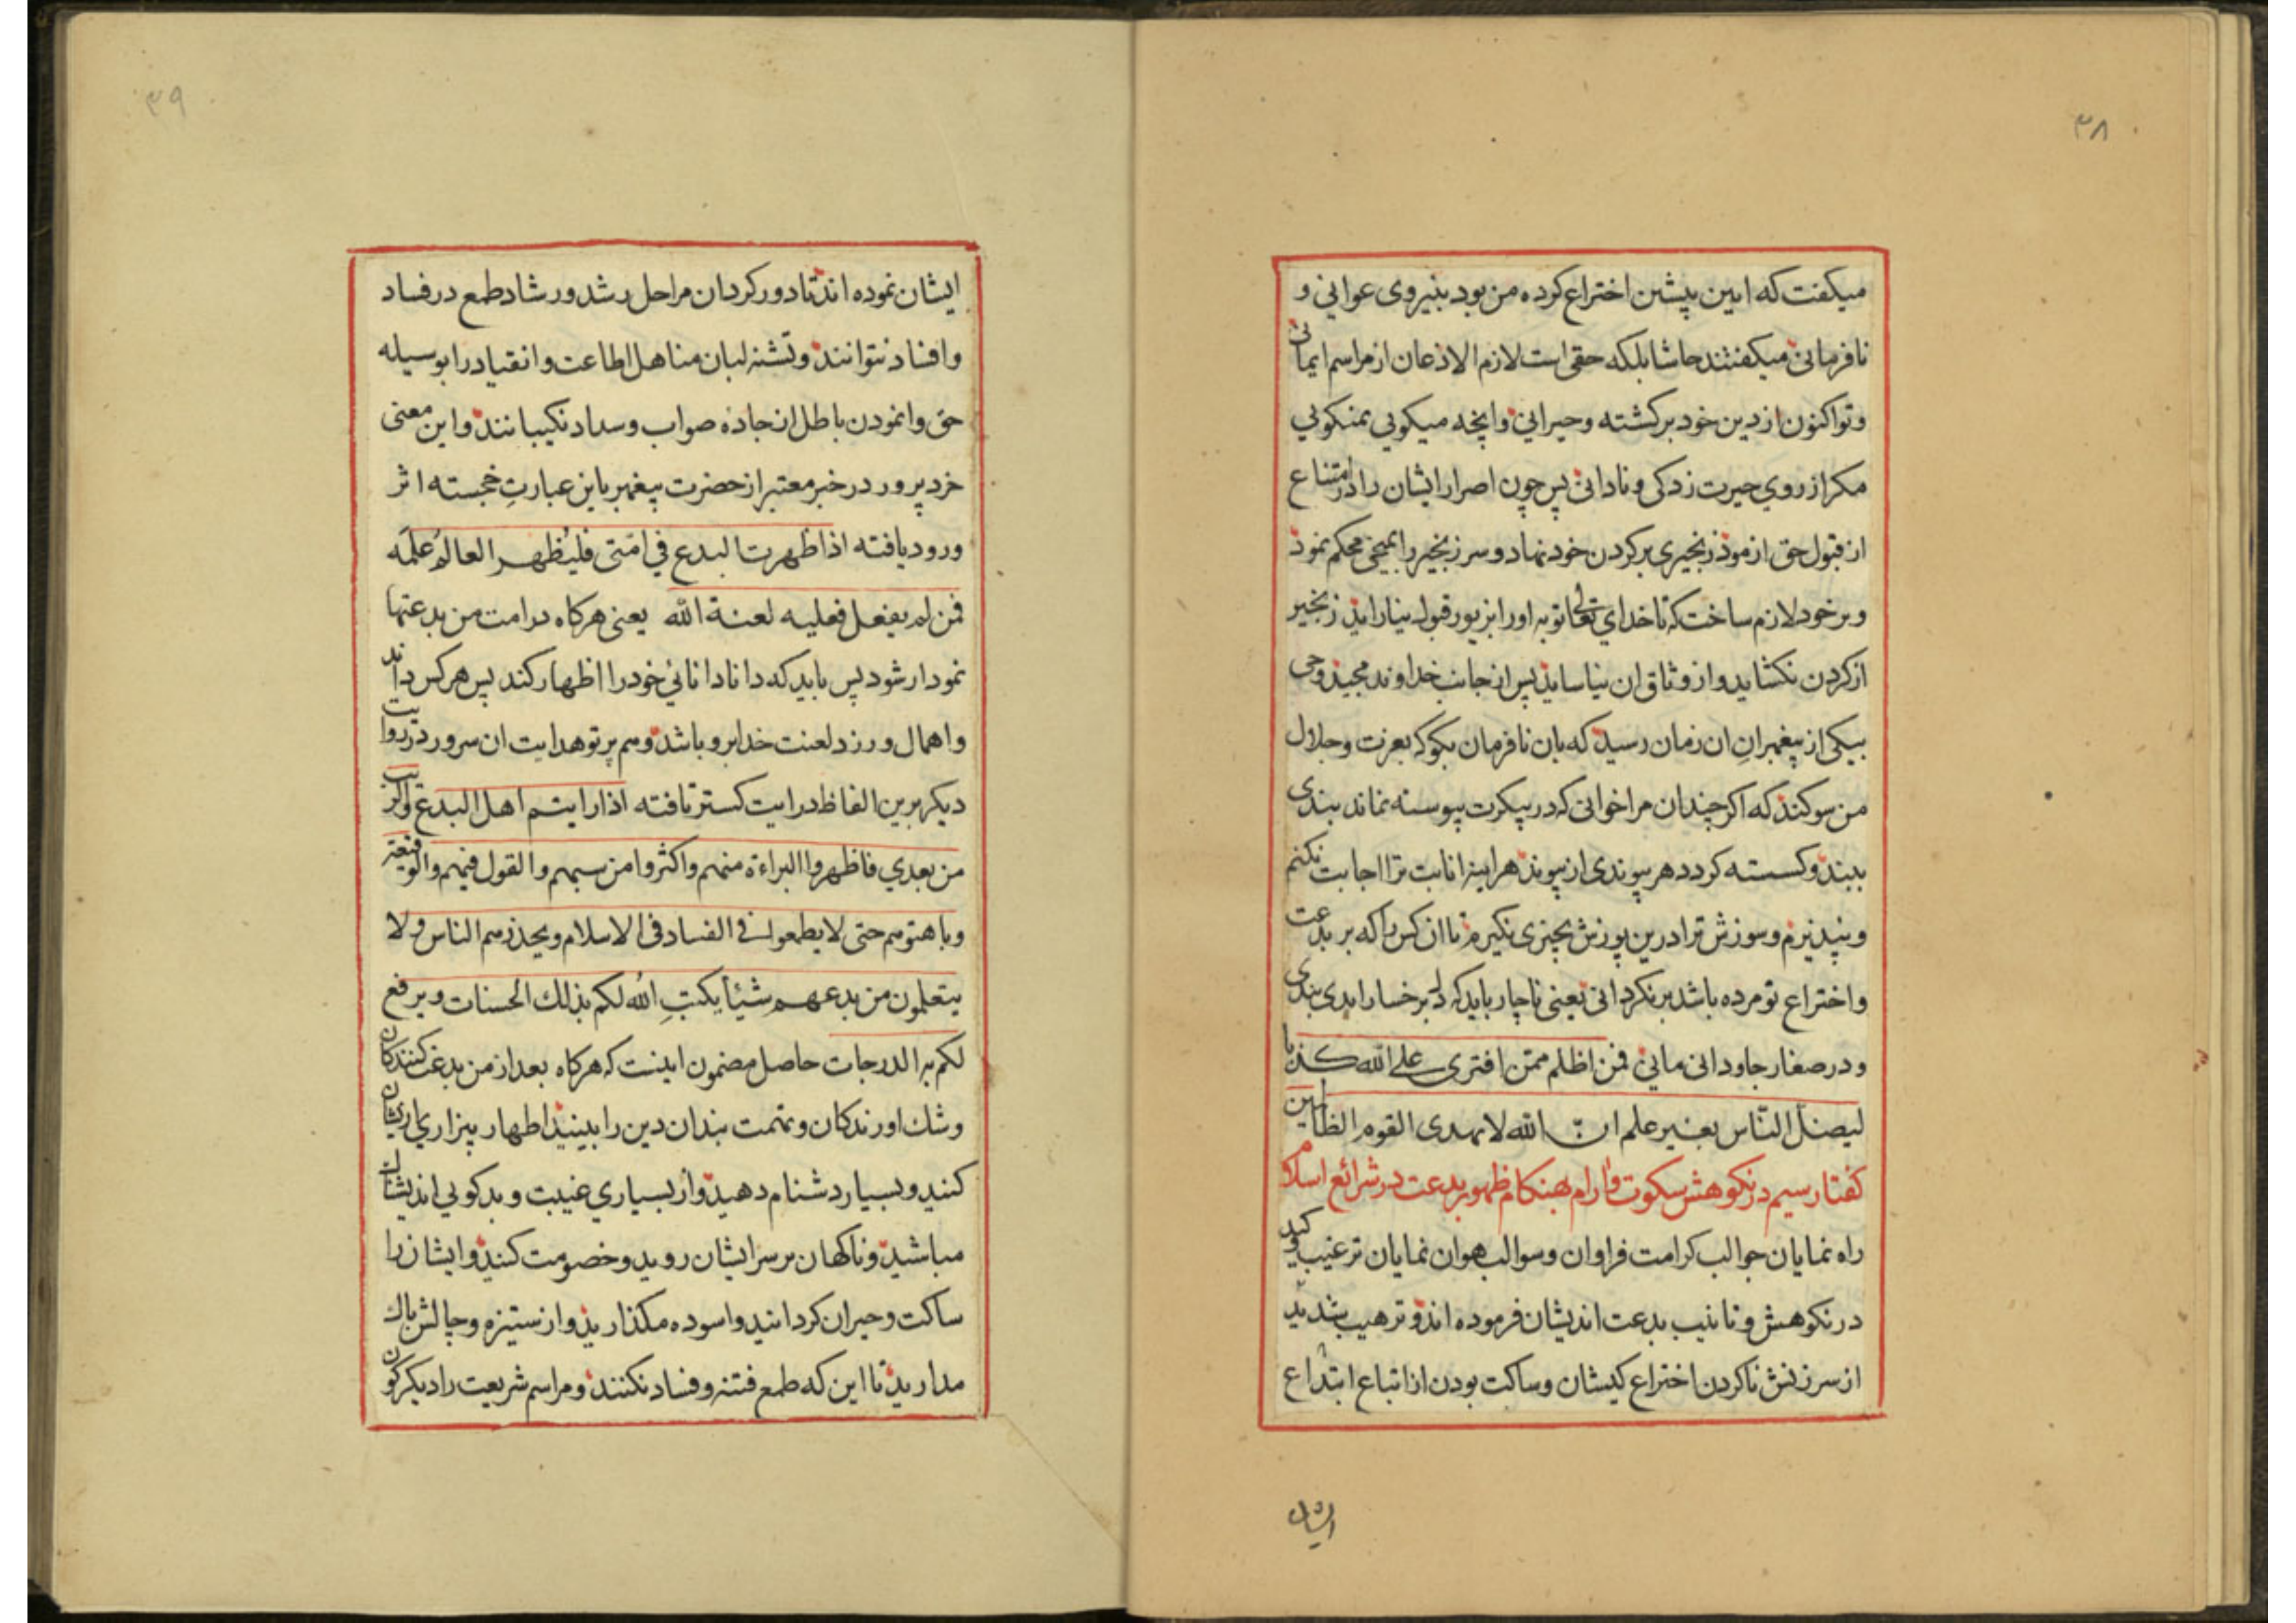 ۳۸
میکفت که ایین پیشین اختراع کرده من بود بنیروی عوانی و
نافرمانی میکفتند حاشا بلکه حقی است لازم الاذعان از مراسم ایمانی
وتو اکنون از دین خود برکشته وحیرانی وانچه میکویی نمیکویی
مکر از روی حیرت زدکی ونادانی پس چون اصرار ایشان را در امتناع
از قبول حق ازمود زنجیری بر کردن خود نهاد وسر زنجیر را بمیخی محکم نمود
وبر خود لازم ساخت که تا خدای تعالی توبه اورا بزیور قبول نیاراید زنجیر
از کردن نکشاید واز وثاق ان نیاساید پس از جانب خداوند مجید وحی
بیکی از پیغمبرانِ ان زمان رسید که بان نافرمان بکو که بعزت وجلال
من سوکند که اکر چندان مرا خوانی که در پیکرت پیوسته نماند بندی
ببند وکسسته کردد هر پیوندی از پیوند هراینه انابت ترا اجابت نکنم
ونپذیرم وسوزش ترا درین پوزش بچیزی نکیرم تا ان کس را که بر بدعت
واختراع تو مرده باشد برنکردانی یعنی ناچار باید که دل بر خسار ابدی بندی
ودر صغار جاودانی مانی فمن اظلم ممن افتری علی الله کذبا
لیضل الناس بغیر علم ان الله لا یهدی القوم الظالمین
کفتار سیم در نکوهش سکوت وارام بهنکام ظهور بدعت در شرائع اسلام
راه نمایان جوالب کرامت فراوان وسوالب هوان نمایان ترغیب اکید
در نکوهش وتانیب بدعت اندیشان فرموده اند وترهیب شدید
از سرزنش ناکردن اختراع کیشان وساکت بودن از اتباع ابتداع
ایشان
۳۹
ایشان نموده اند تا دور کردان مراحل رشد ورشاد طمع در فساد
وافساد نتوانند وتشنه لبان مناهل اطاعت وانقیاد را بوسیله
حق وانمودن باطل از جاده صواب وسداد نکیبانند واین معنی
خرد پرور در خبر معتبر از حضرت پیغمبر باین عبارتِ خجسته اثر
ورود یافته اذا ظهرت البدع في امتی فلیُظهر العالمُ علمَه
فمن لم یفعل فعلیه لعنة الله یعنی هرکاه در امت من بدعتها
نمودار شود پس باید که دانا دانائی خود را اظهار کند پس هرکس داند
واهمال ورزد لعنت خدا برو باشد وهم پرتو هدایت ان سرور در روایت
دیکر برین الفاظ درایت کستر تافته اذا رایتم اهل البدع والریب
من بعدي فاظهروا البراءة منهم واکثروا من سبهم والقول فیهم والوقیعة
وباهتوهم حتی لا یطمعوا فی الفساد فی الاسلام ویحذرهم الناس ولا
یتعلمون من بدعهم شیئا یکتبِ اللهُ لکم بذلك الحسنات ویرفع
لکم به الدرجات حاصل مضمون اینست که هرکاه بعد از من بدعت کنندکان
وشك اورندکان وتهمت بندان دین را ببینید اظهار بیزاری از ایشان
کنید وبسیار دشنام دهید واز بسیاري غیبت وبدکویی اندیشان
مباشید وناکهان بر سر ایشان روید وخصومت کنید وایشان را
ساکت وحیران کردانید واسوده مکذارید واز ستیزه وچالش باك
مدارید تا این که طمع فتنه وفساد نکنند ومراسم شریعت را دیکرکون